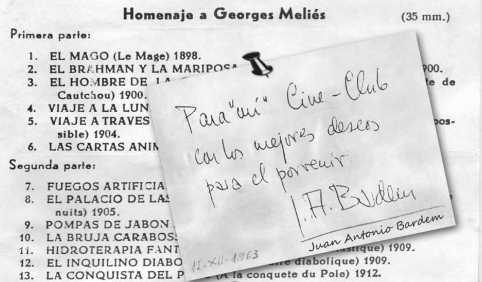 Homenaje a Georges Meliés (35 mm.)
Primera parte:
1. EL MAGO (Le Mage) 1898.
2. EL BRAHMAN Y LA MARIPOSA 900.
3. EL HOMBRE DE LA te de
Cautchou) 1900.
4. VIAJE A LA LUN
5. VIAJE A TRAVES pos-
sible) 1904.
6. LAS CARTAS ANIM
Segunda parte:
7. FUEGOS ARTIFICIA
8. EL PALACIO DE LAS
nuits) 1905.
9. POMPAS DE JABON
10. LA BRUJA CARABOSS
11. HIDROTERAPIA FANT astique) 1909.
12. EL INQUILINO DIABO re diabolique) 1909.
13. LA CONQUISTA DEL P (A la conquete du Pole) 1912.
Para "mi" Cine-Club
con los mejores deseos
para el porvenir
J.A. Bardem
Juan Antonio Bardem
15-XII-1963